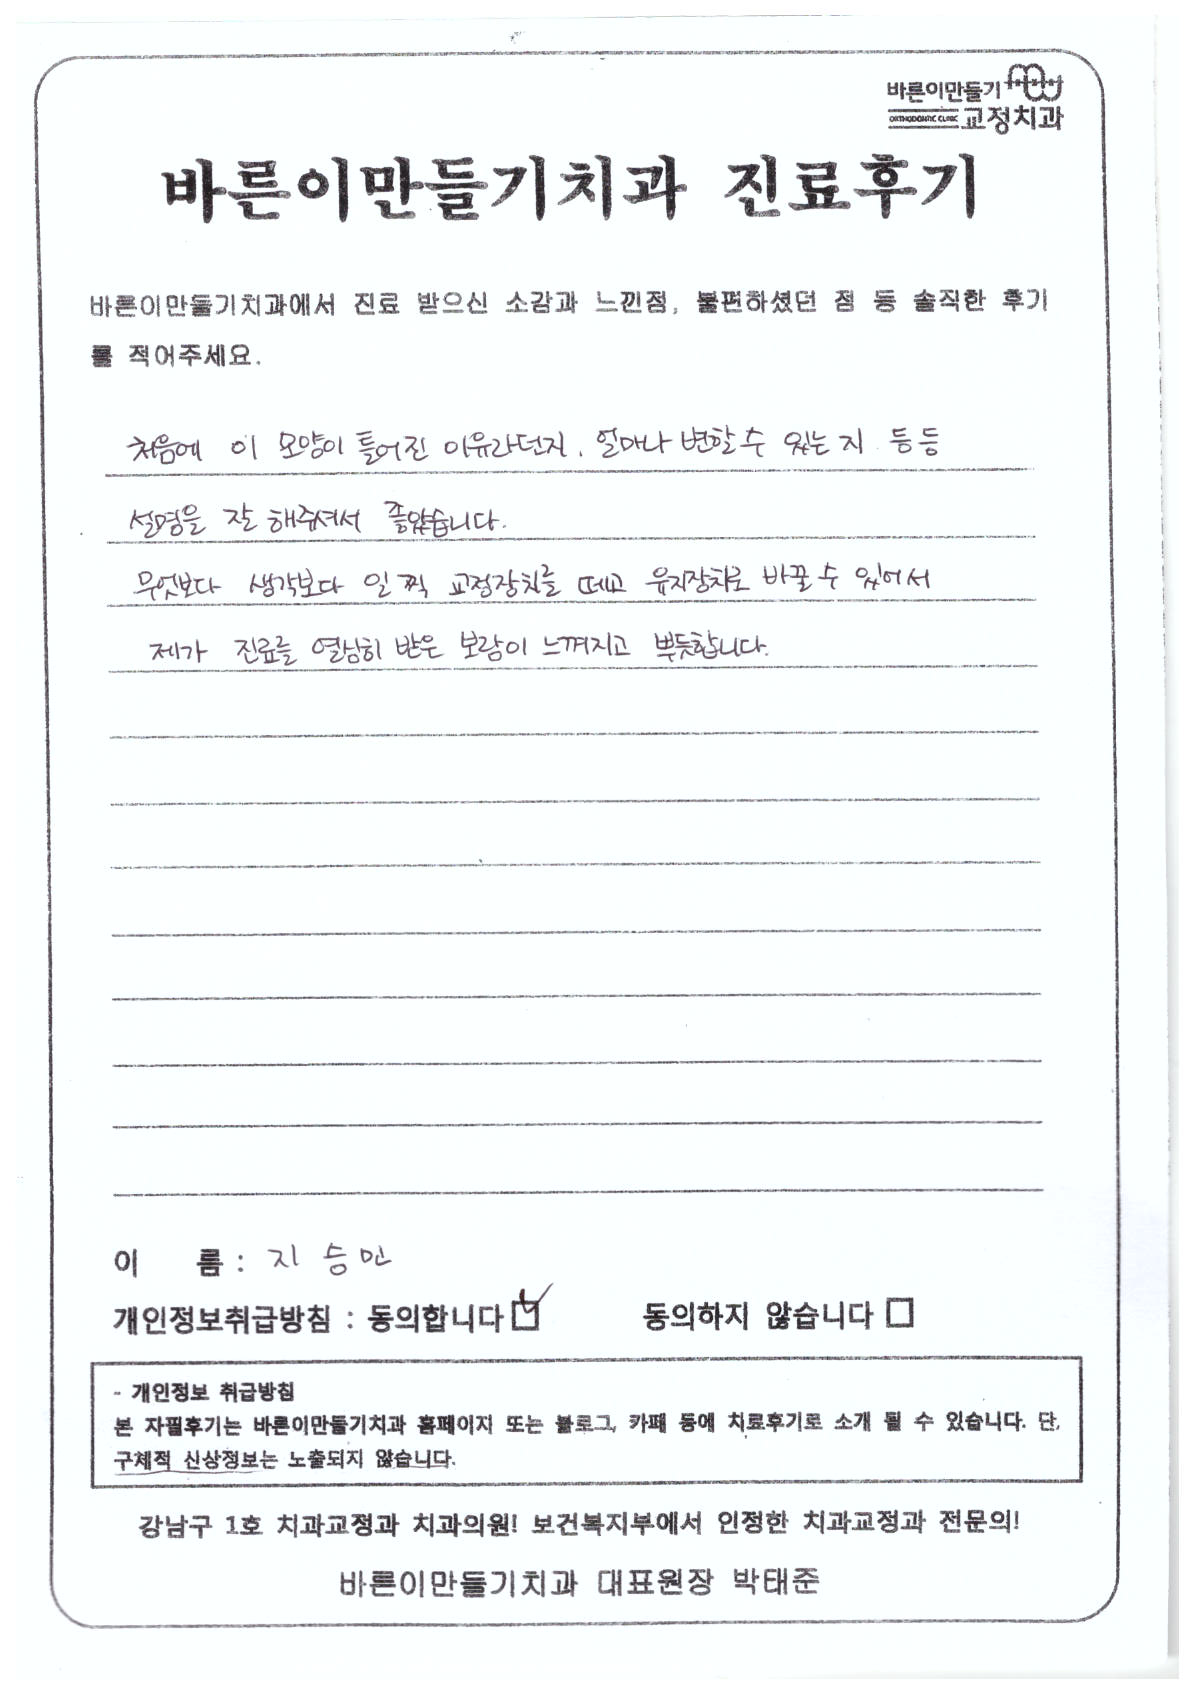 바른이만들기
ORTHODONTIC CLINIC 교정치과
바른이만들기치과 진료후기
바른이만들기치과에서 진료 받으신 소감과 느낀점, 불편하셨던 점 등 솔직한 후기
를 적어주세요.
처음에 이 모양이 틀어진 이유라던지, 얼마나 변할 수 있는 지 등등
설명을 잘 해주셔서 좋았습니다.
무엇보다 생각보다 일찍 교정장치를 떼고 유지장치로 바꿀 수 있어서
제가 진료를 열심히 받은 보람이 느껴지고 뿌듯합니다.
이 름 : 지승민
개인정보취급방침 : 동의합니다 동의하지 않습니다
- 개인정보 취급방침
본 자필후기는 바른이만들기치과 홈페이지 또는 블로그, 카페 등에 치료후기로 소개 될 수 있습니다. 단,
구체적 신상정보는 노출되지 않습니다.
강남구 1호 치과교정과 치과의원! 보건복지부에서 인정한 치과교정과 전문의!
바른이만들기치과 대표원장 박태준